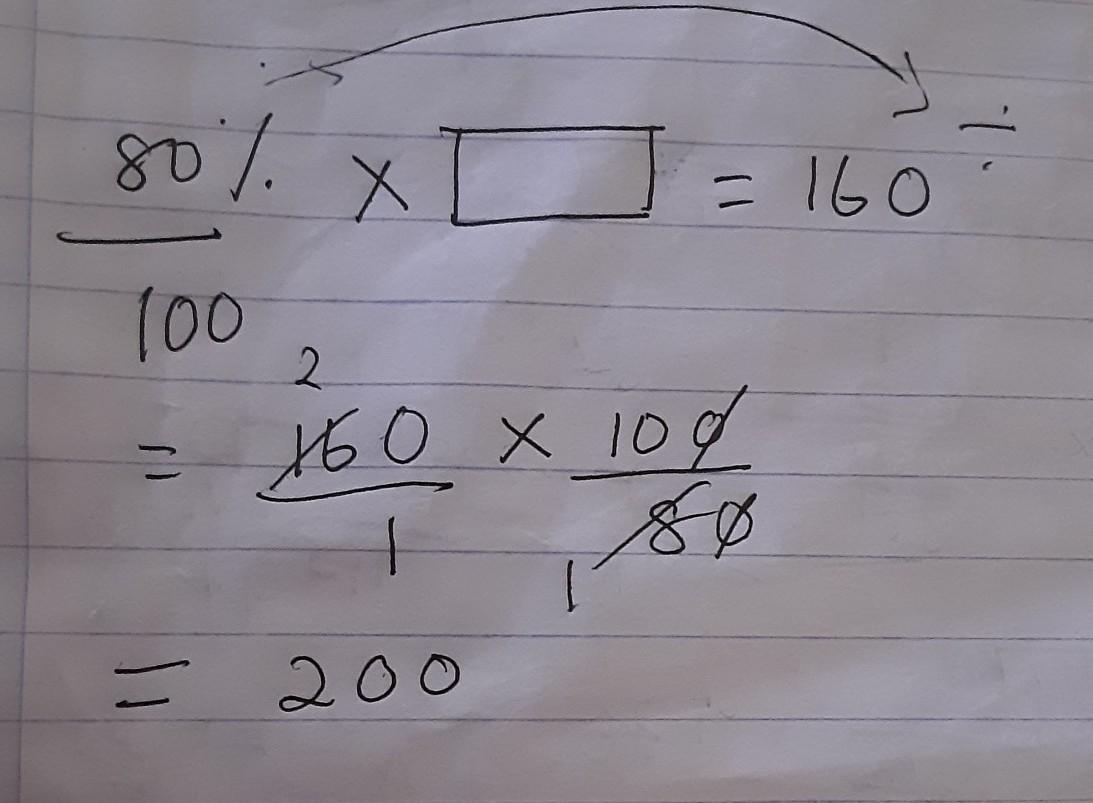 80% × □ = 160 ÷
100
2
= 160/1 × 100/80
1
= 200